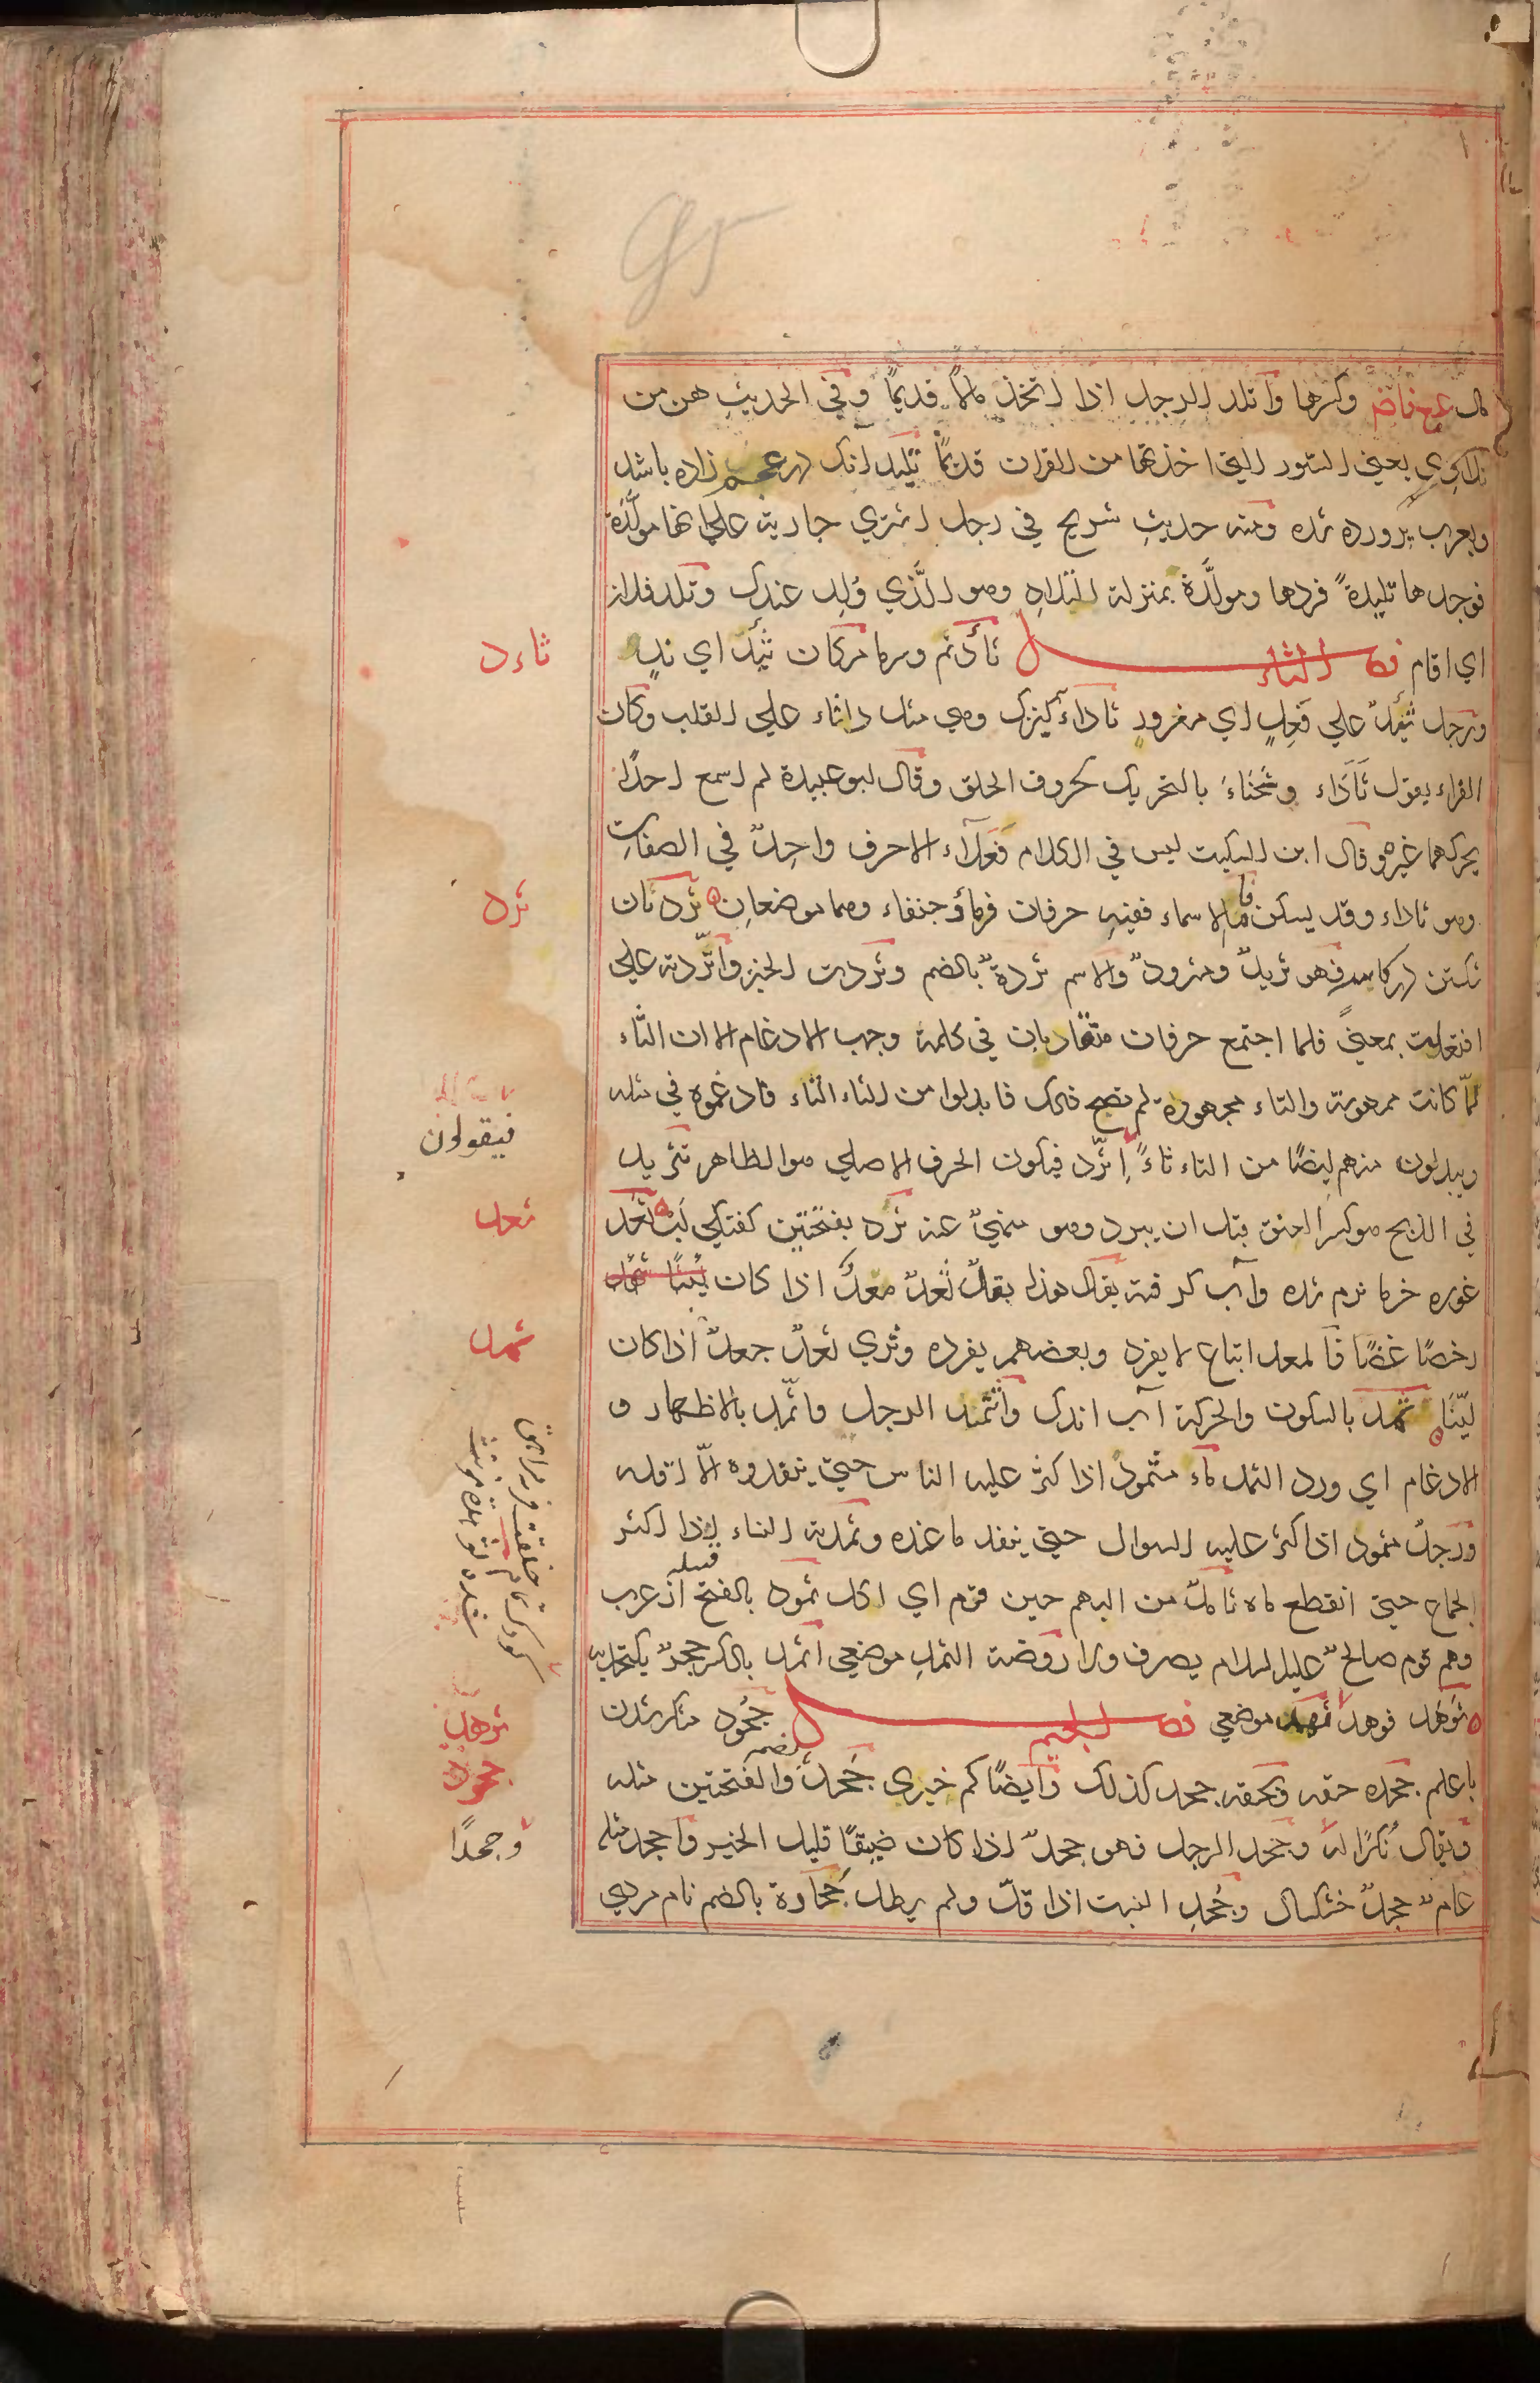 مال وكسرها واتلد الرجل اذا اتخذ مالًا قديمًا وفي الحديث هن من
تلادي يعني السور التي اخذتها من القران قديمًا تليد آنك زاده باشد
وبعرب پرورده شده ومنه حديث شريح في رجل اشتري جارية علي انها مولَّدة
فوجدها تليدةً فردها ومولَّدة بمنزلة التلاد وهو الَّذي وُلِد عندك وتلد فلان
اي اقام فصل الثاء ثأد نم وسرما مكان ثَئِدٌ اي ندٍ
ورجل ثَئِدٌ علي فَعِلٍ اي مقرور ثأداء كنيزك وهي مثل داثاء علي القلب وكان
الفراء يقول ثَأَدَاء وسَحَنَاء بالتحريك لحروف الحلق وقال ابو عبيدة لم اسمع احدًا
يحركهما غيره وقال ابن السكيت ليس في الكلام فَعَلاء الا حرف واحِدٌ في الصفات
وهو ثاداء وقد يسكن الاسماء ففيه حرفان قرماء وجنفاء وهما موضعان ثرد نان
شكستن در كاسه فهو ثريدٌ ومثرودٌ والاسم ثردةٌ بالضم وثردت الخبز واثّردته علي
افتعلت بمعنيً فلما اجتمع حرفان متقاربان في كلمة وجب الادغام الا ان الثاء
لمّا كانت مهموسة والتاء مجهورة لم يصح ذلك فابدلوا من التاء الثاء فادغموه في مثله
ويبدلون منهم ايضًا من الثاء تاءً اِتّرد فيكون الحرف الاصلي هو الظاهر تثريد
في الذبح هو كسر العنق قبل ان يبرد وهو منهيٌ عنه ثرد بفتحتين كفتكي لب ثعد
غوره خرما نرم شده وآب كرفته يقال هذا بقلٌ ثعدٌ معدٌ اذا كان
رخصًا غضًا فالمعد اتباع لا يفرد وبعضهم يفرده وثري ثعدٌ جعدٌ اذا كان
ليّنًا ثمد بالسكون والحركة آب اندك واثتمد الرجل واثّمد بالاظهار و
الادغام اي ورد الثمد ماء مثمودٌ اذا كثر عليه الناس حتي ينفدوه الّا اقله
ورجلٌ مثمود اذا كثر عليه السوال حتي ينفد ما عنده وثمدته النساء اذا اكثر
الجماع حتي انقطع ماه ثامدٌ من البهم حين قرم اي اكل ثمود بالفتح قبيله از عرب
وهم قوم صالحٌ عليه السلام يصرف ولا روضة الثمد موضعي اثمد بالكسر حجرٌ يكتحل به
ثوهد فوهد ثهمد موضعي فصل الجيم جحود منكر شدن
با علم جحده حقه وبحقه جحد كذلك وايضًا كم خيري جَحدٌ بضمه والفتحتين مثله
ويقال نُكرًا له وجحد الرجل فهو جحدٌ اذا كان ضيقًا قليل الخير واجحد مثله
عامٌ جحدٌ خشكسال وجُحِد النبت اذا قلّ ولم يطل جُحادة بالضم نام مردي
ثاءد
ثرد
فيقولون
ثعد
ثمد
كودك تمام خلقت قريب
ثوهد
جحود
وجحدًا